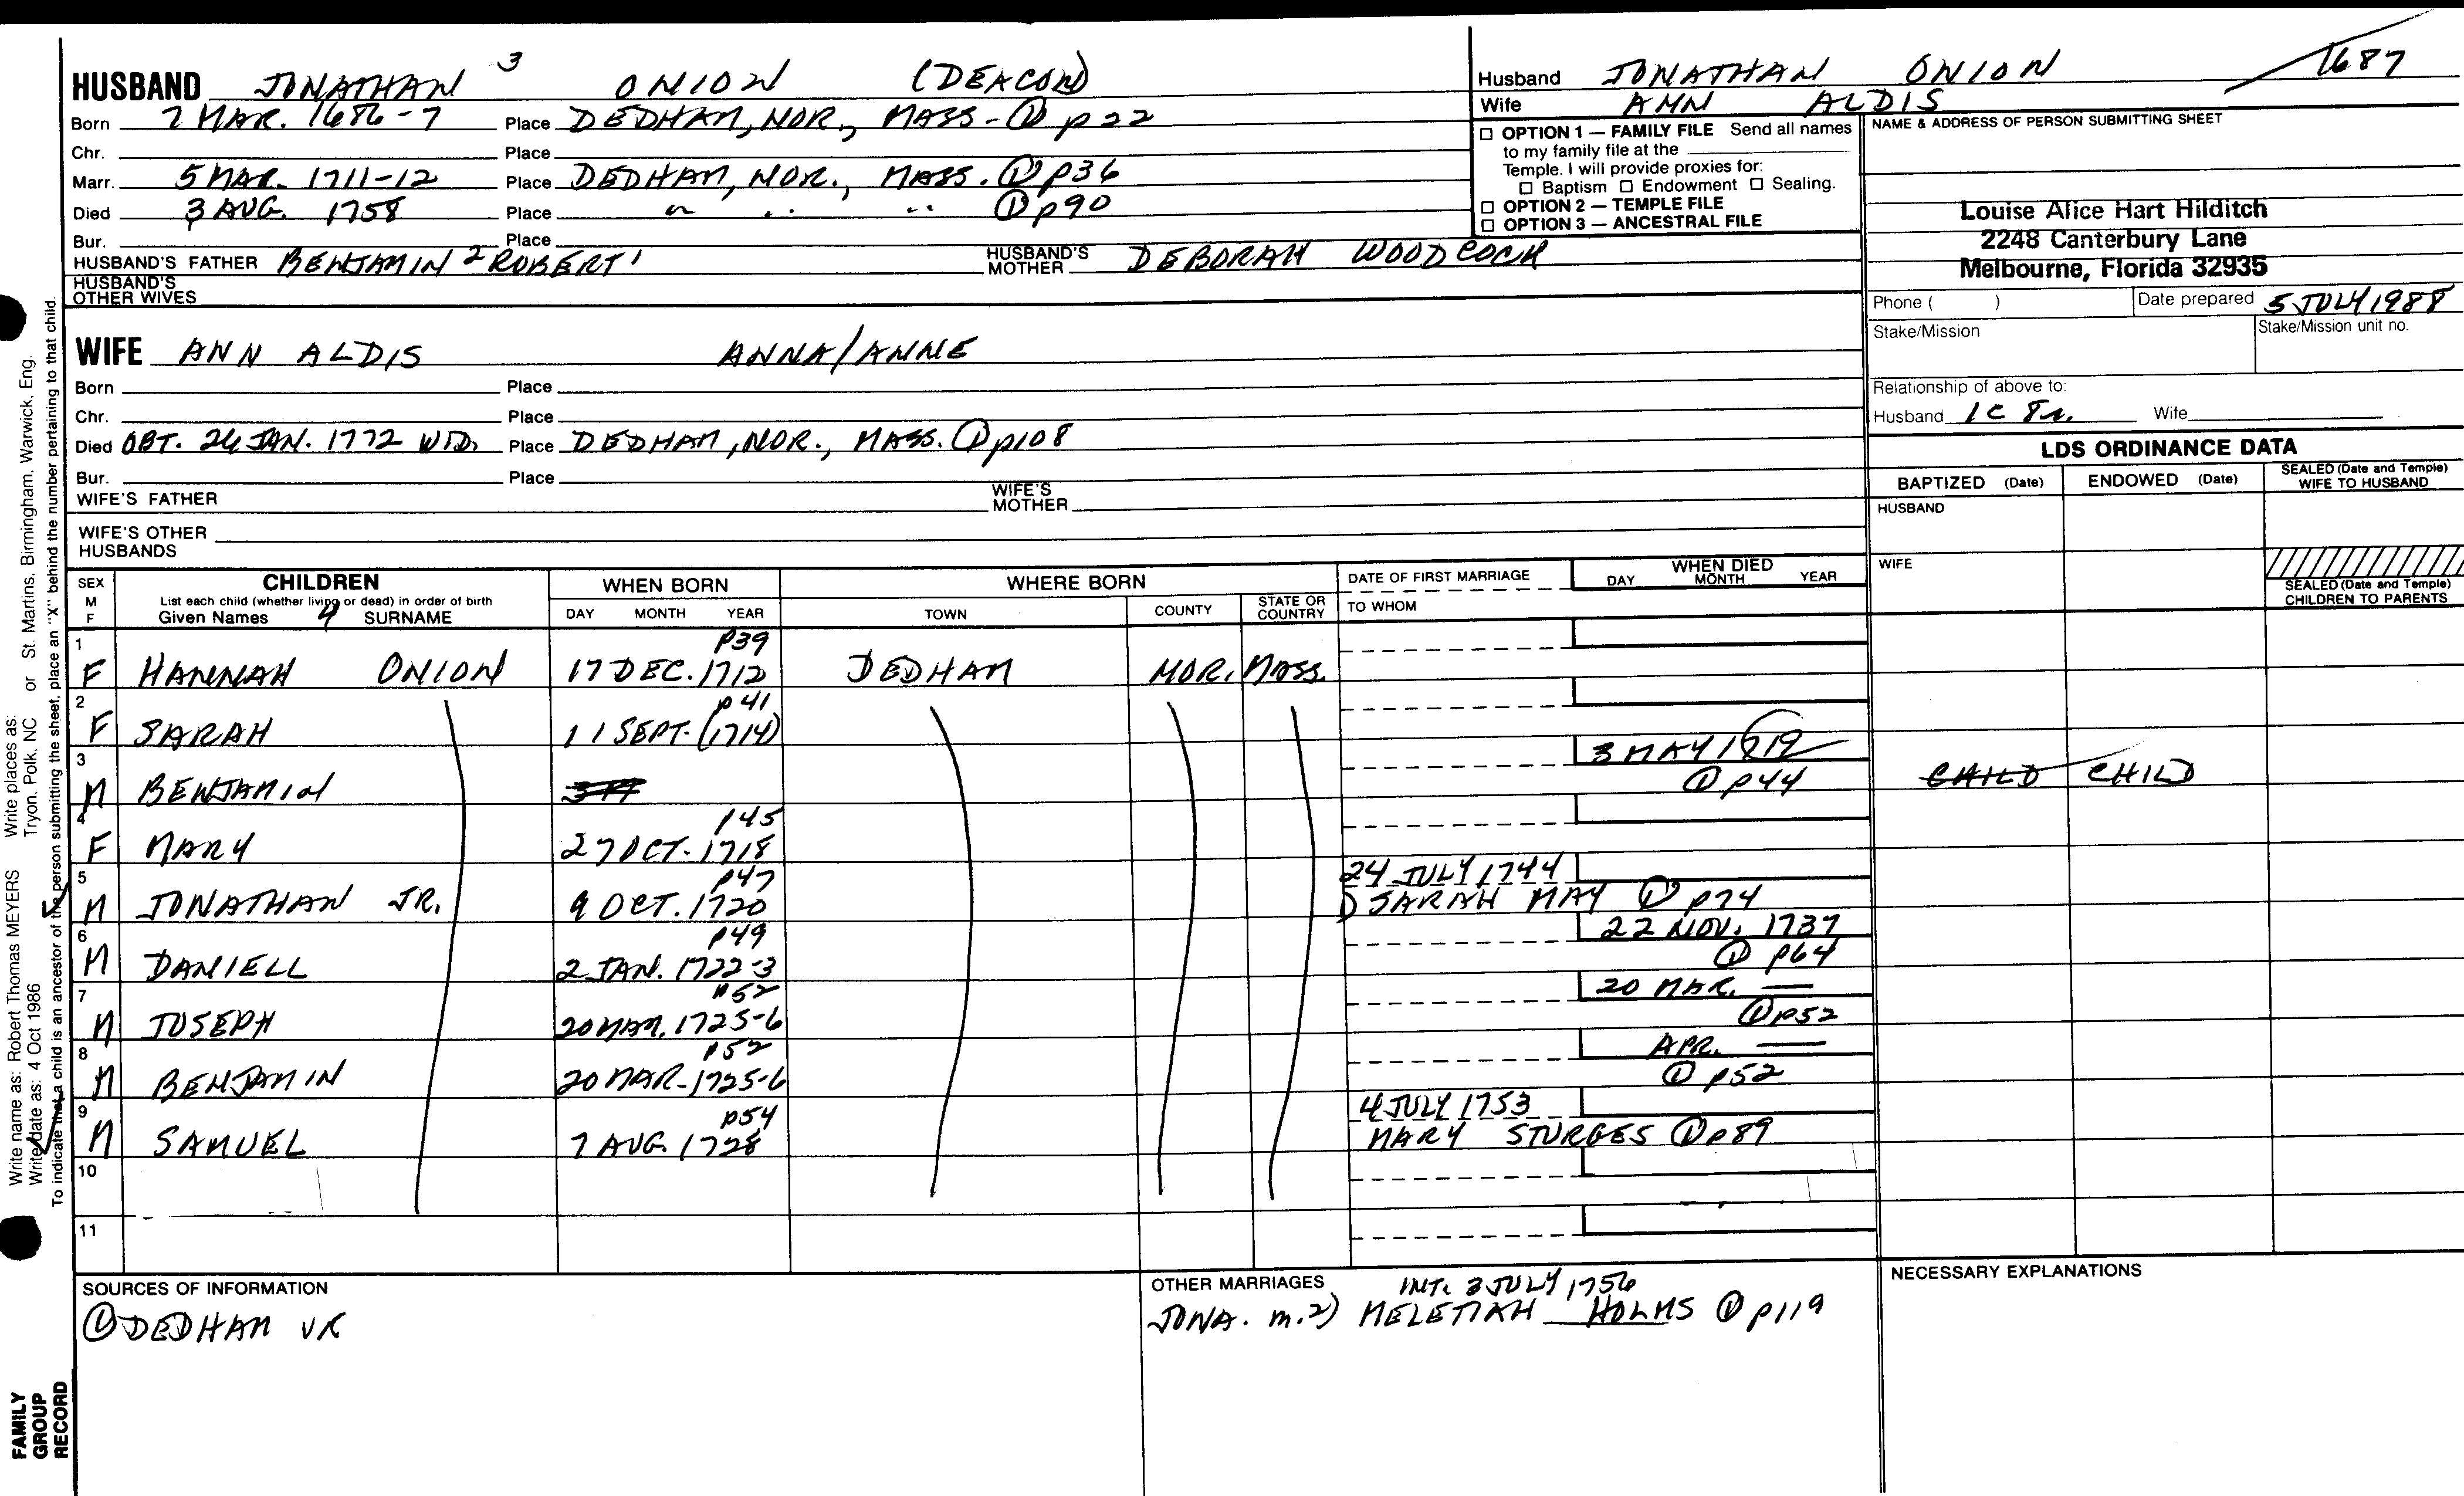 HUSBAND JONATHAN 3 ONION (DEACON)
Born 7 MAR. 1686-7 Place DEDHAM, NOR., MASS. - ① p 22
Chr. Place
Marr. 5 MAR. 1711-12 Place DEDHAM, NOR., MASS. ① p36
Died 3 AUG. 1758 Place " " " ① p90
Bur. Place
HUSBAND'S FATHER BENJAMIN 2 ROBERT 1 HUSBAND'S MOTHER DEBORAH WOODCOCK
HUSBAND'S OTHER WIVES
Husband JONATHAN ONION 1687
Wife ANN ALDIS
☐ OPTION 1 — FAMILY FILE Send all names
to my family file at the
Temple. I will provide proxies for:
☐ Baptism ☐ Endowment ☐ Sealing.
☐ OPTION 2 — TEMPLE FILE
☐ OPTION 3 — ANCESTRAL FILE
NAME & ADDRESS OF PERSON SUBMITTING SHEET
Louise Alice Hart Hilditch
2248 Canterbury Lane
Melbourne, Florida 32935
Phone ( ) Date prepared 5 JULY 1988
Stake/Mission Stake/Mission unit no.
Relationship of above to:
Husband 1C 8r. Wife
WIFE ANN ALDIS ANNA/ANNE
Born Place
Chr. Place
Died OBT. 24 JAN. 1772 WID. Place DEDHAM, NOR., MASS. ① p108
Bur. Place
WIFE'S FATHER WIFE'S MOTHER
WIFE'S OTHER HUSBANDS
LDS ORDINANCE DATA
BAPTIZED (Date) ENDOWED (Date) SEALED (Date and Temple) WIFE TO HUSBAND
HUSBAND
WIFE
SEALED (Date and Temple) CHILDREN TO PARENTS
SEX M F
CHILDREN
List each child (whether living or dead) in order of birth
Given Names 4 SURNAME
WHEN BORN
DAY MONTH YEAR
WHERE BORN
TOWN COUNTY STATE OR COUNTRY
DATE OF FIRST MARRIAGE
TO WHOM
WHEN DIED
DAY MONTH YEAR
1 p39
F HANNAH ONION 17 DEC. 1712 DEDHAM NOR. MASS.
2 p41
F SARAH 11 SEPT. (1714)
3 3 MAY 1719
M BENJAMIN ① p44 CHILD CHILD
4 p45
F MARY 27 OCT. 1718
5 p47 24 JULY 1744
M JONATHAN JR. 9 OCT. 1720 SARAH MAY ① p74
6 p49 22 NOV. 1737
M DANIELL 2 JAN. 1722-3 ① p64
7 p52 20 MAR. —
M JOSEPH 20 MAR. 1725-6 ① p52
8 p52 APR. —
M BENJAMIN 20 MAR. 1725-6 ① p52
9 p54 4 JULY 1753
M SAMUEL 7 AUG. 1728 MARY STURGES ① p89
10
11
SOURCES OF INFORMATION
① DEDHAM VR
OTHER MARRIAGES INT. 3 JULY 1756
JONA. m.2) MELETIAH HOLMS ① p119
NECESSARY EXPLANATIONS
Write name as: Robert Thomas MEYERS Write places as:
Write date as: 4 Oct 1986 Tryon, Polk, NC or St. Martins, Birmingham, Warwick, Eng.
To indicate that a child is an ancestor of the person submitting the sheet, place an "X" behind the number pertaining to that child.
FAMILY
GROUP
RECORD